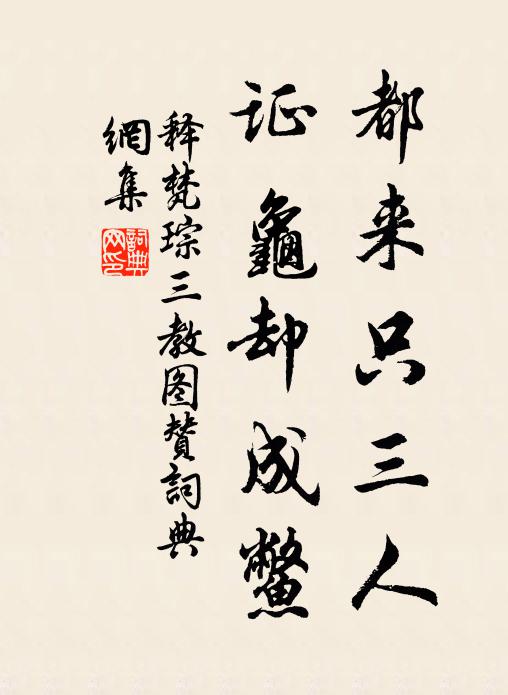 都来只三人
证龜却成鱉
释梵琮三教图赞詞典
網集
詞典网印